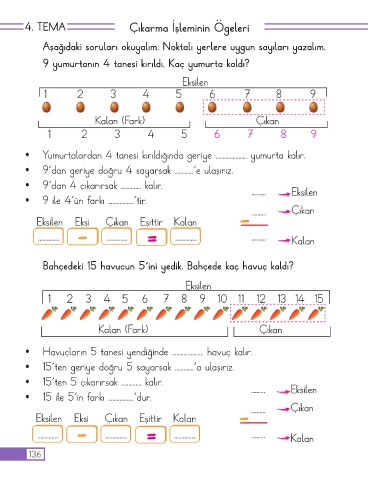 4. TEMA Çıkarma İşleminin Ögeleri
Aşağıdaki soruları okuyalım. Noktalı yerlere uygun sayıları yazalım.
9 yumurtanın 4 tanesi kırıldı. Kaç yumurta kaldı?
Eksilen
1 2 3 4 5 6 7 8 9
Kalan (Fark) Çıkan
1 2 3 4 5 6 7 8 9
• Yumurtalardan 4 tanesi kırıldığında geriye ................. yumurta kalır.
• 9'dan geriye doğru 4 sayarsak ...........'e ulaşırız.
• 9'dan 4 çıkarırsak ........... kalır.
• 9 ile 4'ün farkı ..............'tir.
........ Eksilen
........ Çıkan
–
........ Kalan
Eksilen Eksi Çıkan Eşittir Kalan
............ – ............ = ............
Bahçedeki 15 havucun 5'ini yedik. Bahçede kaç havuç kaldı?
Eksilen
1 2 3 4 5 6 7 8 9 10 11 12 13 14 15
Kalan (Fark) Çıkan
• Havuçların 5 tanesi yendiğinde ................. havuç kalır.
• 15'ten geriye doğru 5 sayarsak ...........'a ulaşırız.
• 15'ten 5 çıkarırsak ........... kalır.
• 15 ile 5'in farkı ..............'dur.
........ Eksilen
........ Çıkan
–
........ Kalan
Eksilen Eksi Çıkan Eşittir Kalan
............ – ............ = ............
136